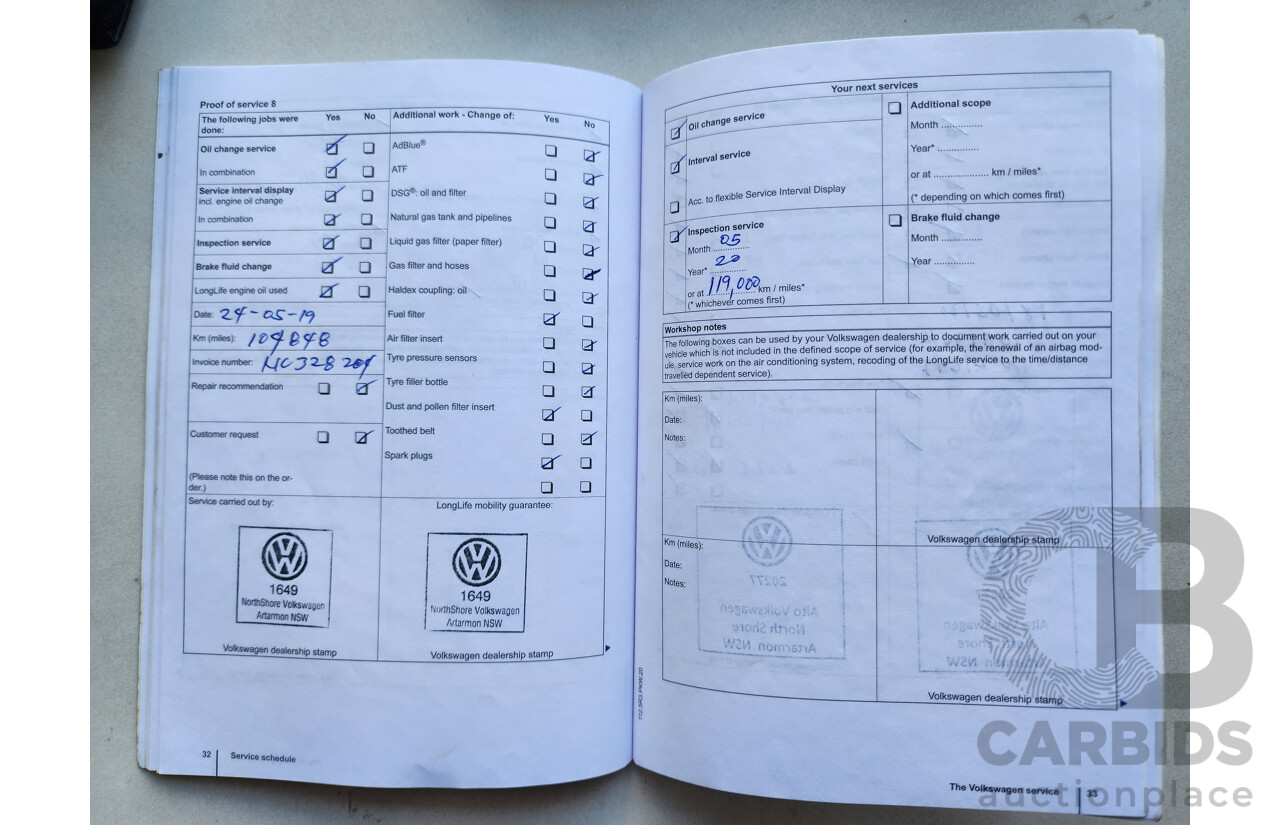 Proof of service 8
The following jobs were done: Yes No
Oil change service
In combination
Service interval display
incl. engine oil change
In combination
Inspection service
Brake fluid change
LongLife engine oil used
Date: 24-05-19
Km (miles): 104848
Invoice number:
Repair recommendation
Customer request
(Please note this on the or-
der.)
Additional work - Change of: Yes No
AdBlue®
ATF
DSG®: oil and filter
Natural gas tank and pipelines
Liquid gas filter (paper filter)
Gas filter and hoses
Haldex coupling: oil
Fuel filter
Air filter insert
Tyre pressure sensors
Tyre filler bottle
Dust and pollen filter insert
Toothed belt
Spark plugs
Service carried out by:
1649
NorthShore Volkswagen
Artarmon NSW
Volkswagen dealership stamp
LongLife mobility guarantee:
1649
NorthShore Volkswagen
Artarmon NSW
Volkswagen dealership stamp
32 Service schedule
Your next services
Oil change service
Interval service
Acc. to flexible Service Interval Display
Inspection service
Month 05
Year* 20
or at 119,000 km / miles*
(* whichever comes first)
Additional scope
Month ..............
Year* ..............
or at ................... km / miles*
(* depending on which comes first)
Brake fluid change
Month ..............
Year ..............
Workshop notes
The following boxes can be used by your Volkswagen dealership to document work carried out on your
vehicle which is not included in the defined scope of service (for example, the renewal of an airbag mod-
ule, service work on the air conditioning system, recoding of the LongLife service to the time/distance
travelled dependent service).
Km (miles):
Date:
Notes:
Volkswagen dealership stamp
Km (miles):
Date:
Notes:
Volkswagen dealership stamp
The Volkswagen service 33
CARBIDS
auctionplace